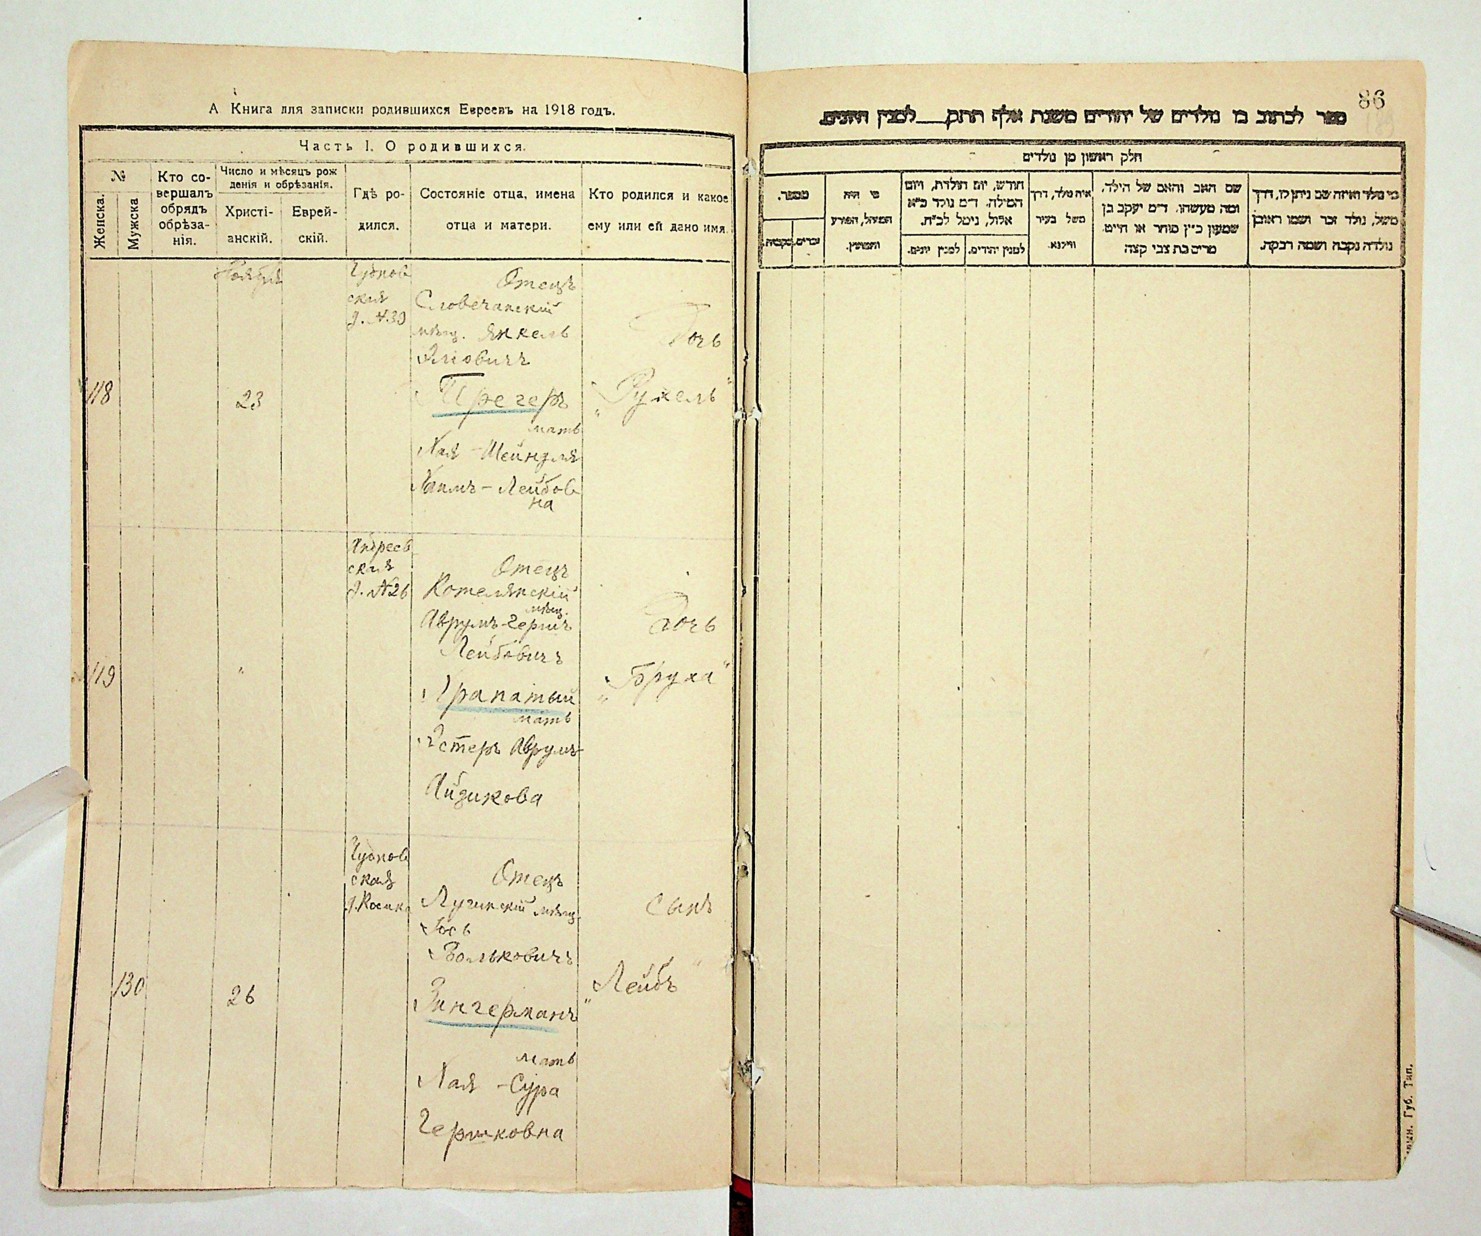 А. Книга для записки родившихся Евреевъ на 1918 годъ.
Часть I. О родившихся.
№
Женска.
Мужска
Кто со-
вершалъ
обрядъ
обрѣза-
нія.
Число и мѣсяцъ рож
денія и обрѣзанія.
Христі-
анскій.
Еврей-
скій.
Гдѣ ро-
дился.
Состояніе отца, имена
отца и матери.
Кто родился и какое
ему или ей дано имя.
Ноября
118
23
Чуднов
ская
д. №39
Отецъ
Словечанскій
мѣщ. Янкель
Прегеръ
мать
Хая-Шейндля
Хаимъ-Лейбов
на
Дочь
119
"
ская
д. №26
Отецъ
Котелянскій
мѣщ.
Аврумъ-Герш
Лейбовичъ
мать
Эстеръ Аврумъ-
Айзикова
Дочь
„Бруха"
130
26
Чуднов
ская
Отецъ
Лугинскій мѣщ.
Іось
Вольковичъ
Зингерманъ
мать
Хая-Сура
Гершковна
сынъ
„Лейбъ"
86
ספר לכתוב בו נולדים של יהודים משנת אלף תתק___למנין היונים.
חלק ראשון מן נולדים
מספר.
זכרים.
נקבות.
מי היה
המוהל, הפורע
והמוצץ.
חודש, יום הולדת, ויום
המילה. ד״מ נולד כ״א
אלול, נימל לכ״ח.
למנין יונים.
למנין יהודים.
איה נולד, דרך
משל בעיר
ווילנא.
שם האב והאם של הילד,
ומה מעשהו. ד״מ יעקב בן
שמעון כ״ץ סוחר או חייט
מרים בת צבי קצה
מי נולד ואיזה שם ניתן לו, דרך
משל, נולד זכר ושמו ראובן
נולדה נקבה ושמה רבקה.
Губ. Тип.